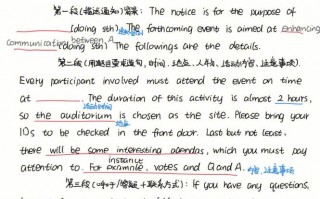 第一段(描述通知)答案: The notice is for the purpose of
______(doing sth) The forthcoming event is aimed at enhancing
communication between A
______(doing sth) The followings are the details.
第二段(用 要求造句, 时间、地点、人物、活动内容、注意事项)
Every participant involved must attend the event on time
at ______. The duration of this activity is almost 2 hours,
活动时间
so the auditorium is chosen as the site. Please bring your
地点
IDs to be checked in the front door. Last but not least,
there will be some interesting agendas, which you must pay
instance
attention to. For example, votes and Q and A. 内容、注意事项
第三段( + 联系方式): If you have any questions,